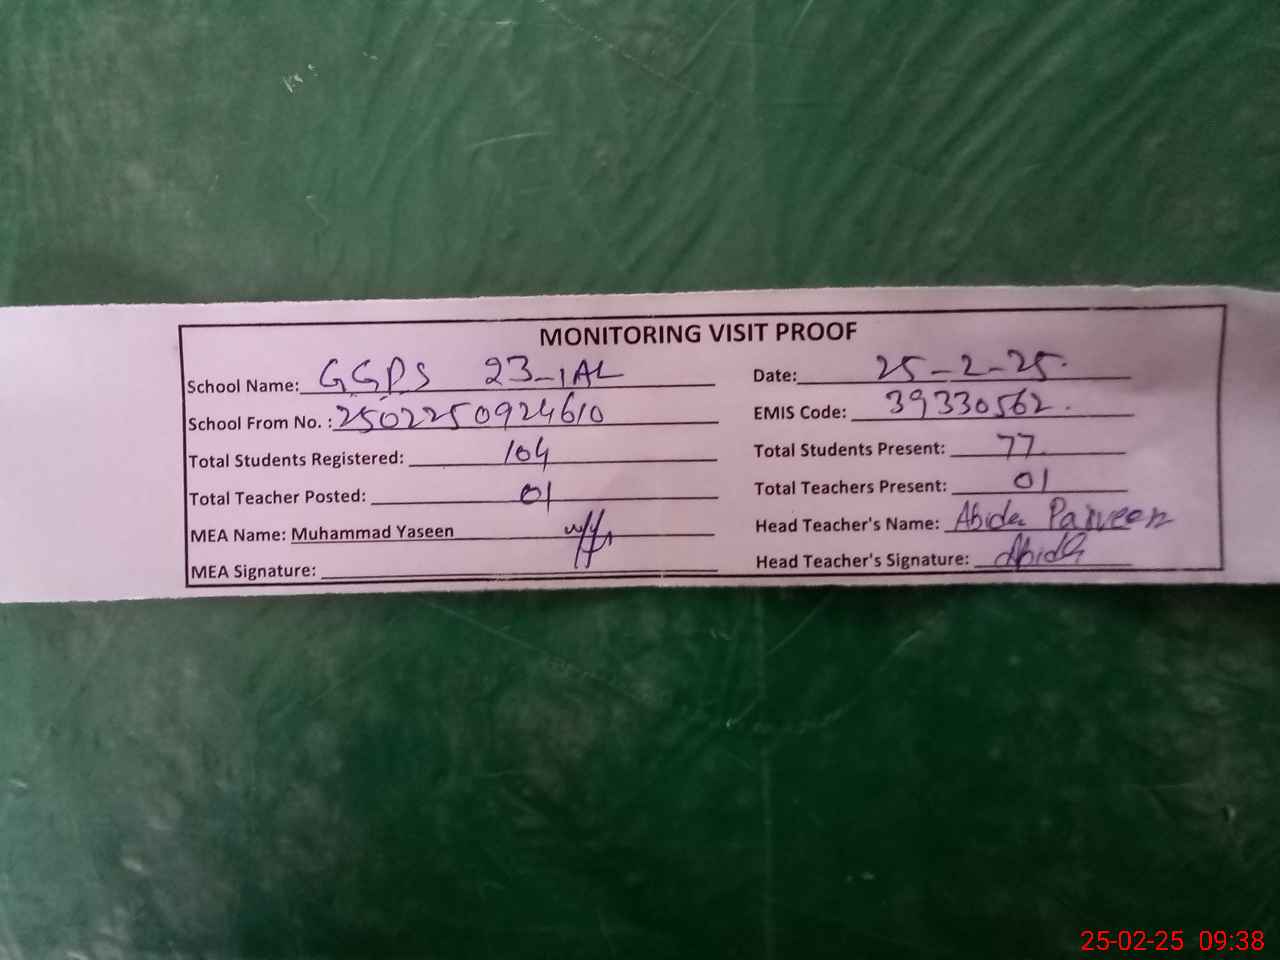 MONITORING VISIT PROOF
School Name: GGPS 23-1AL Date: 25-2-25.
School From No. : 2502250924610 EMIS Code: 39330562.
Total Students Registered: 104 Total Students Present: 77
Total Teacher Posted: 01 Total Teachers Present: 01
MEA Name: Muhammad Yaseen Head Teacher's Name: Abida Parveen
MEA Signature: Head Teacher's Signature: Abida
25-02-25 09:38